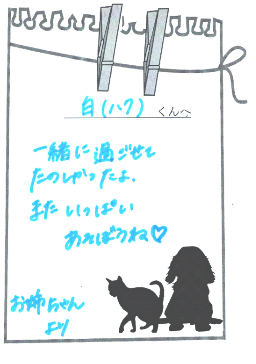 白(ハク) くんへ
一緒に過ごせて
たのしかったよ。
また いっぱい
あそぼうね♡
お姉ちゃん
より